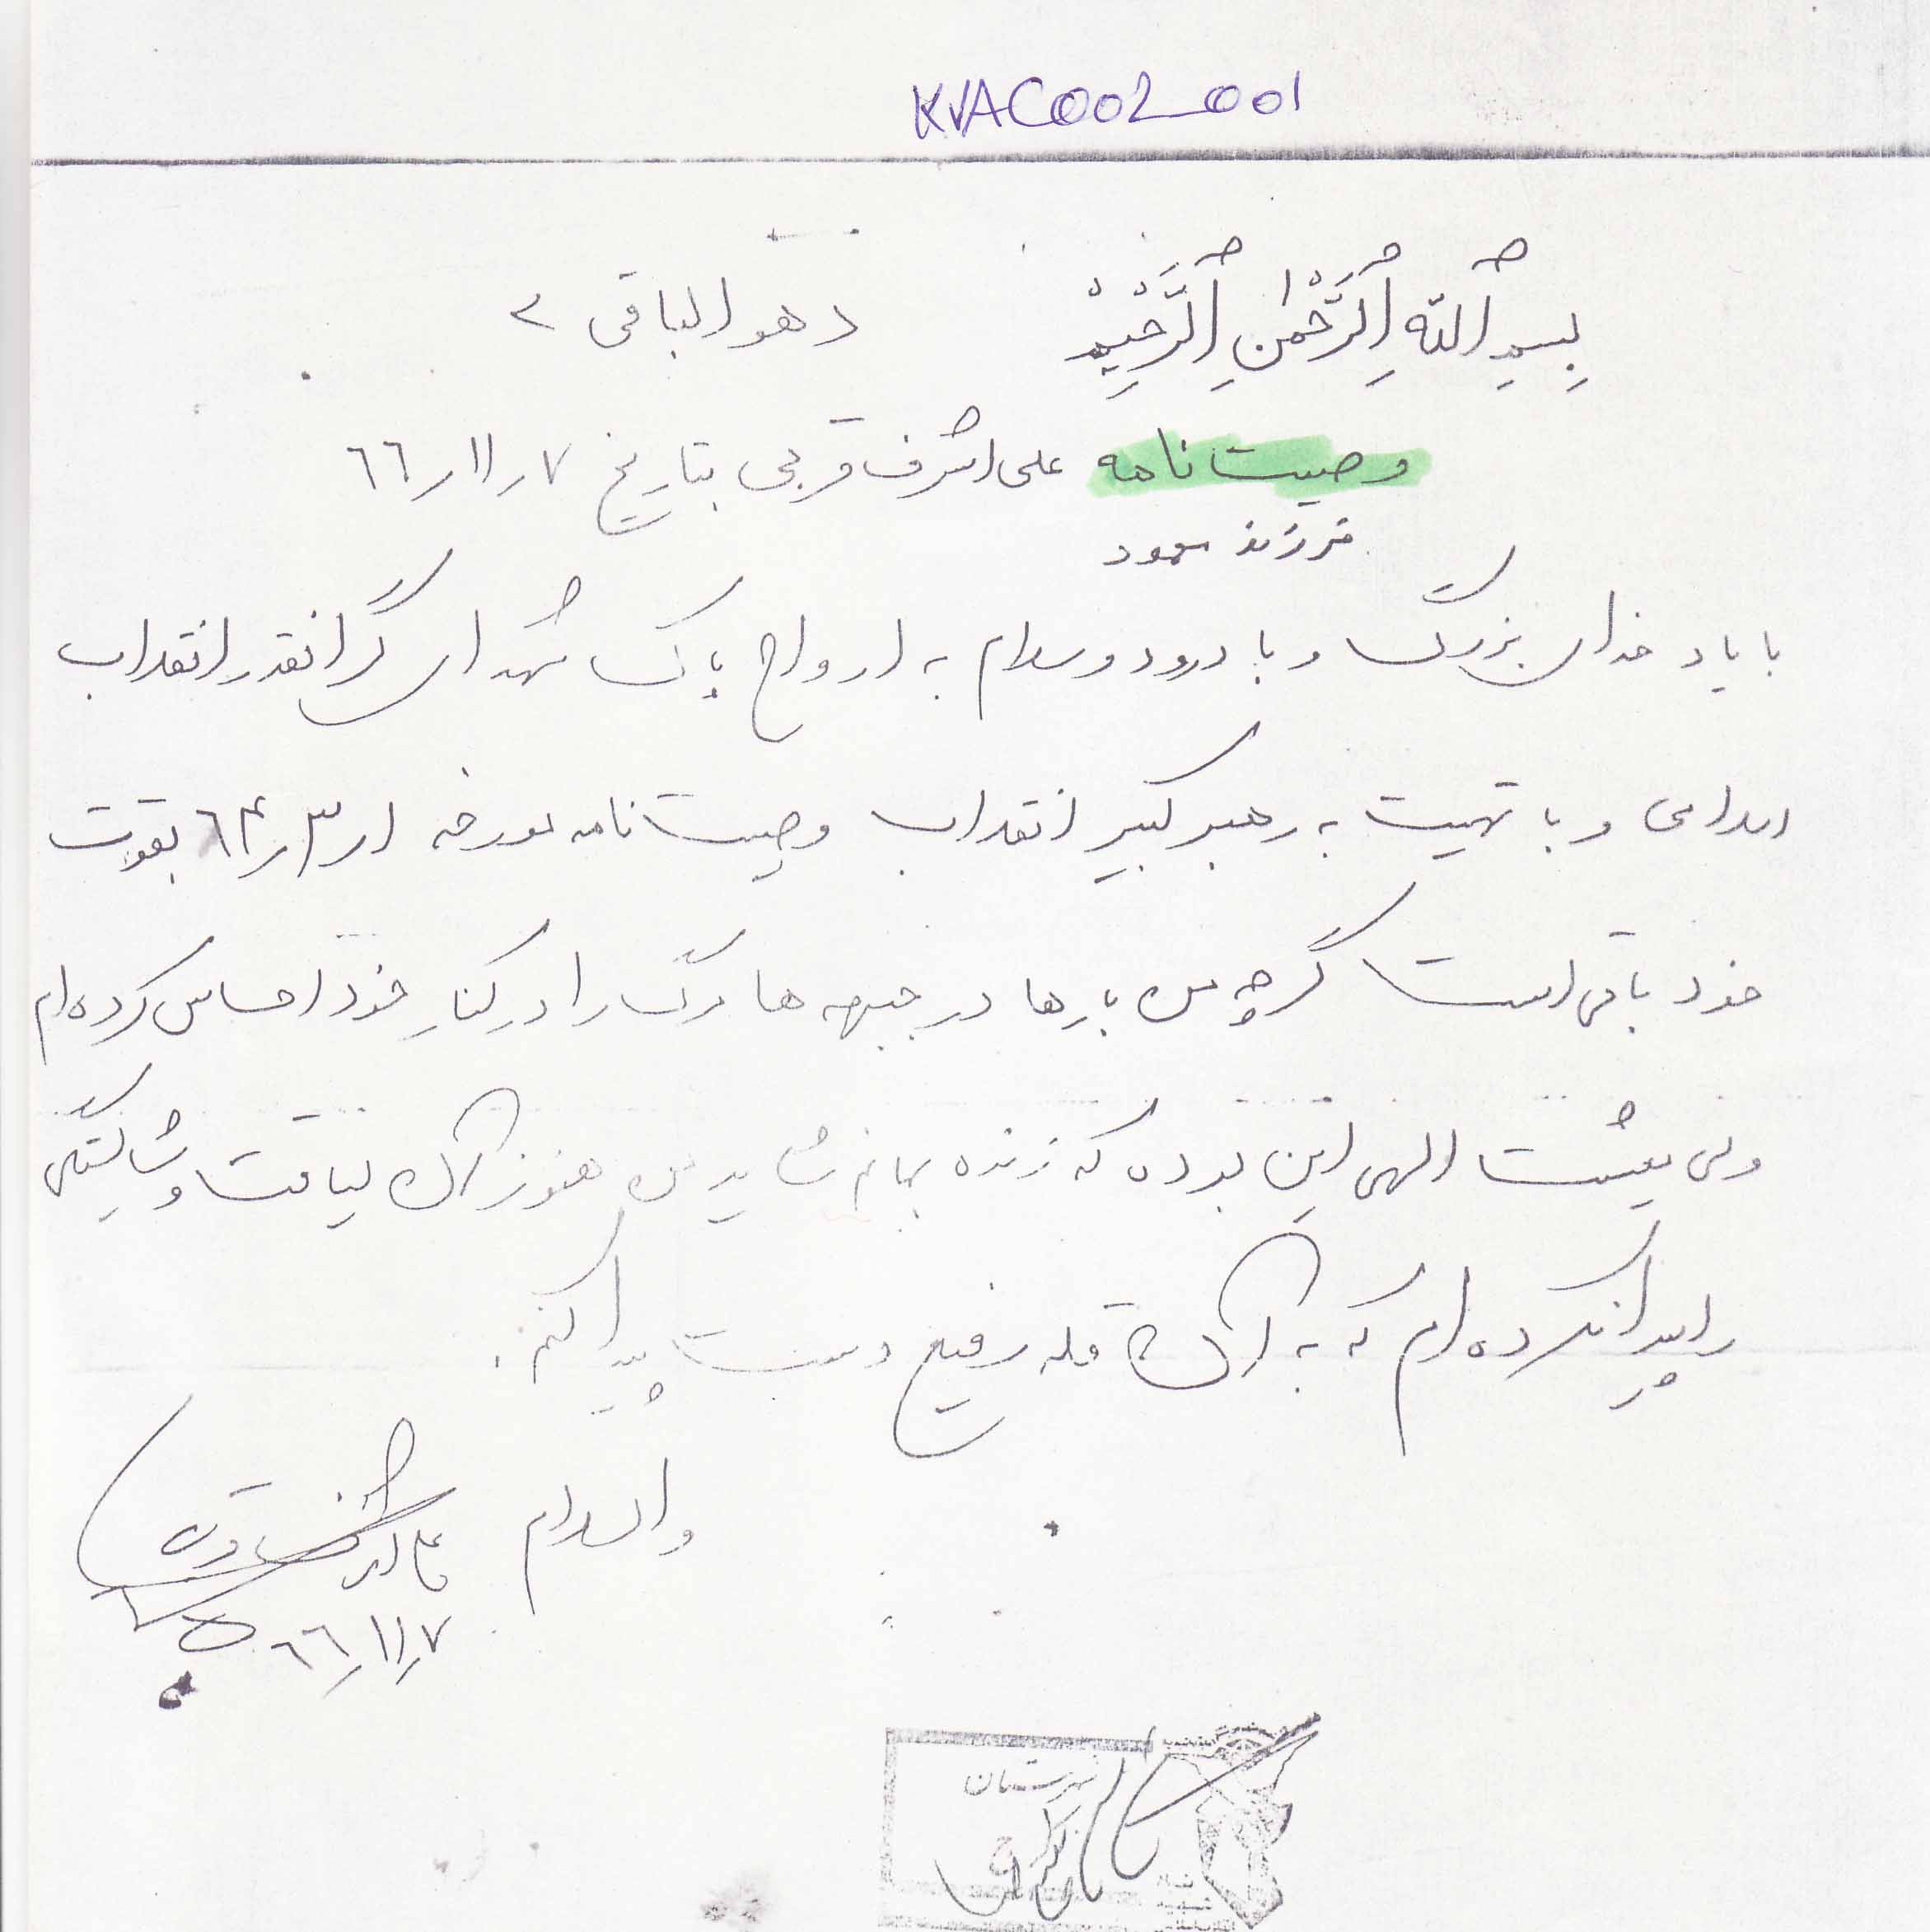 KVAC002_001
بِسمِ اللّهِ الرَّحْمنِ الرَّحیمْ » هو الباقی «
وصیت نامه علی اشرف قرجی بتاریخ ٧ر١١ر٦٦
فرزند محمود
با یاد خدای بزرگ و با درود و سلام به ارواح پاک شهدای گرانقدر انقلاب
اسلامی و با تهیت به رهبر کبیر انقلاب وصیت نامه مورخه ١ر٣ر٦۴ بقوت
خود باقی است گرچه من بارها در جبهه ها مرگ را در کنار خود احساس کرده ام
ولی مشیت الهی این بوده که زنده بمانم شاید من هنوز آن لیاقت و شایستگی
را پیدا نکرده ام که به آن قله رفیع دست پیدا کنم.
والسلام
٧ر١١ر٦٦
شهرستان
کرج